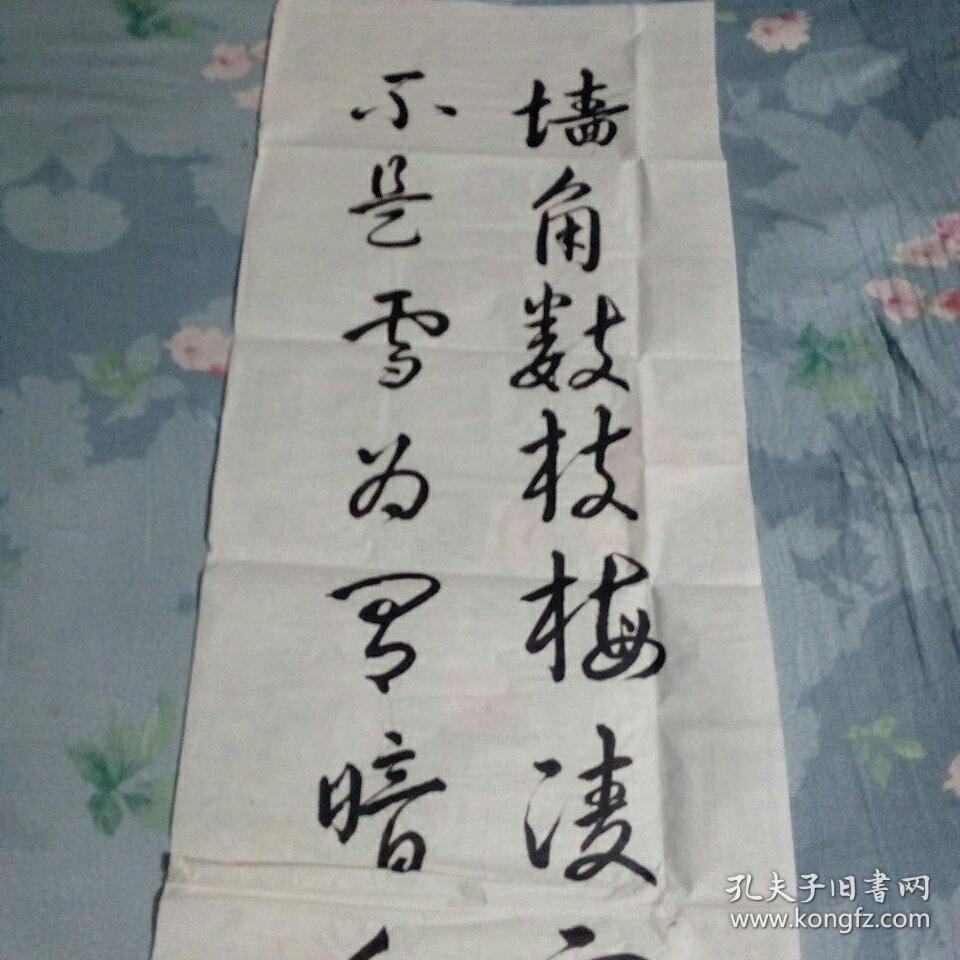 墙角数枝梅凌
不是雪为有暗
孔夫子旧書网
www.kongfz.com